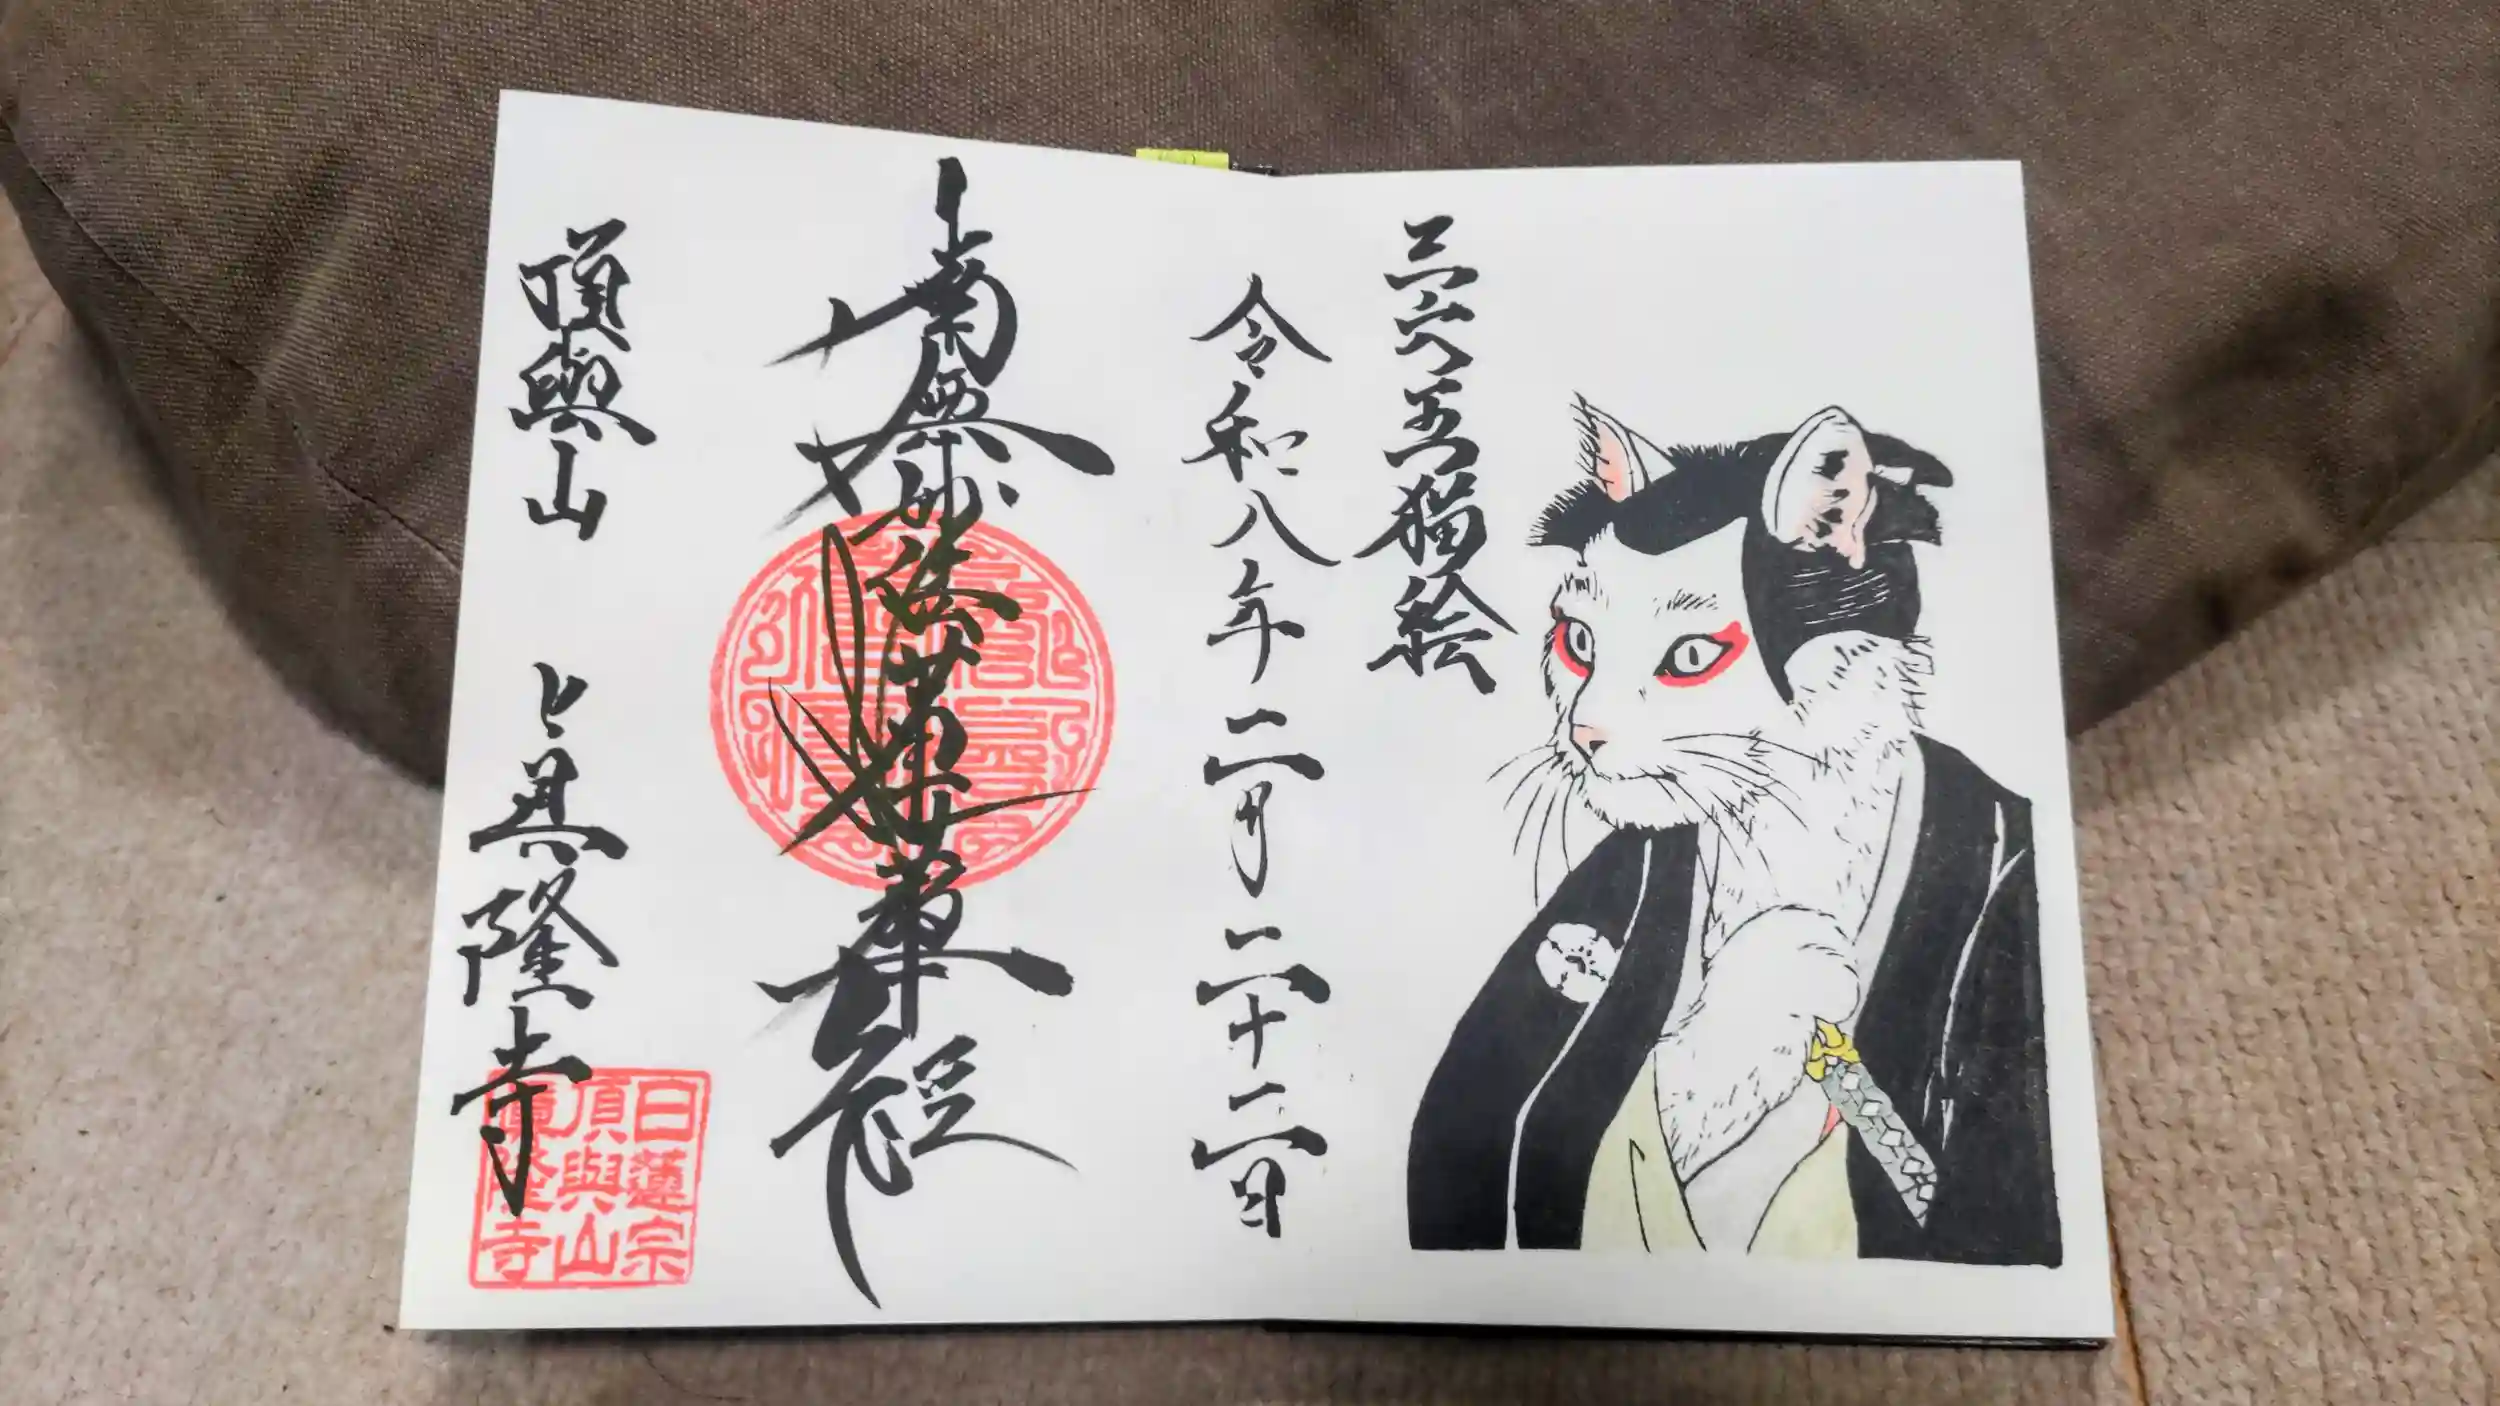 三六五猫絵
令和八年二月二十二日
南無妙法蓮華経
頂與山 眞隆寺
日蓮宗
頂與山
眞隆寺